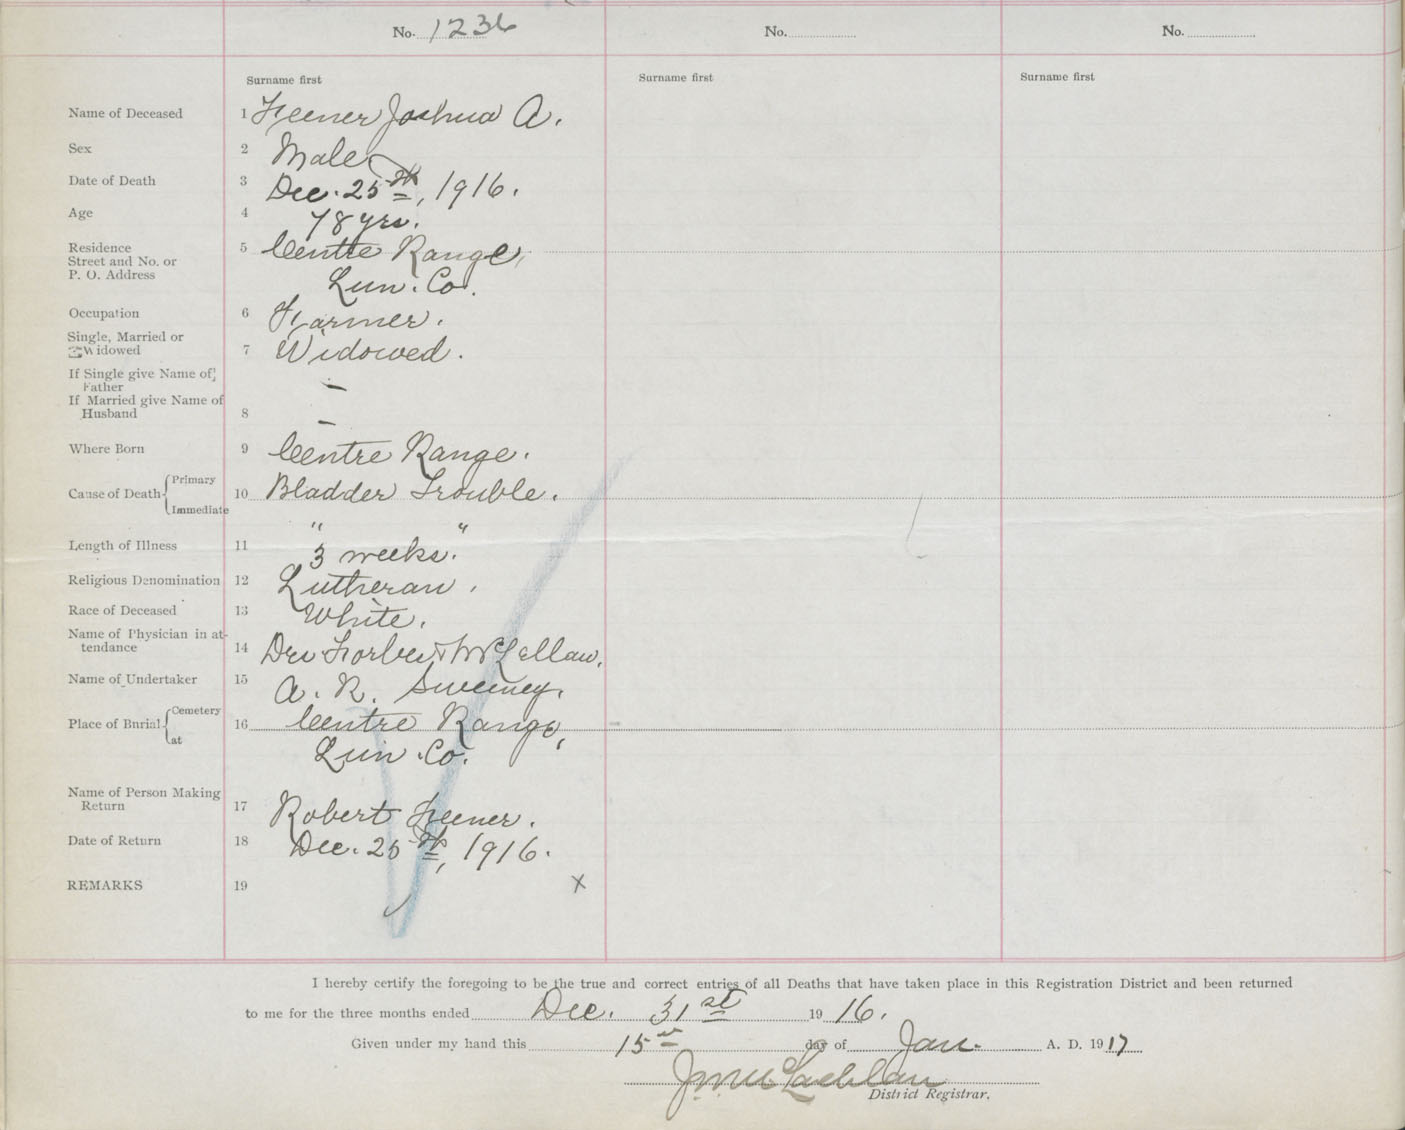 No. 1236 No. No.
Surname first Surname first Surname first
Name of Deceased 1 Feener Joshua A.
Sex 2 Male
Date of Death 3 Dec. 25th, 1916.
Age 4 78 yrs.
Residence 5 Centre Range,
Street and No. or
P. O. Address Lun. Co.
Occupation 6 Farmer.
Single, Married or
Widowed 7 Widowed.
If Single give Name of
Father –
If Married give Name of
Husband 8 –
Where Born 9 Centre Range.
Primary
Cause of Death 10 Bladder Trouble.
Immediate " "
Length of Illness 11 3 weeks.
Religious Denomination 12 Lutheran.
Race of Deceased 13 White.
Name of Physician in at-
tendance 14 Drs Forbes & McLellan.
Name of Undertaker 15 A. R. Sweeney.
Cemetery
Place of Burial 16 Centre Range,
at Lun. Co.
Name of Person Making
Return 17 Robert Feener.
Date of Return 18 Dec. 25th, 1916.
REMARKS 19 x
I hereby certify the foregoing to be the true and correct entries of all Deaths that have taken place in this Registration District and been returned
to me for the three months ended Dec. 31st 19 16.
Given under my hand this 15 day of Jan. A. D. 19 17
McLachlan
District Registrar.